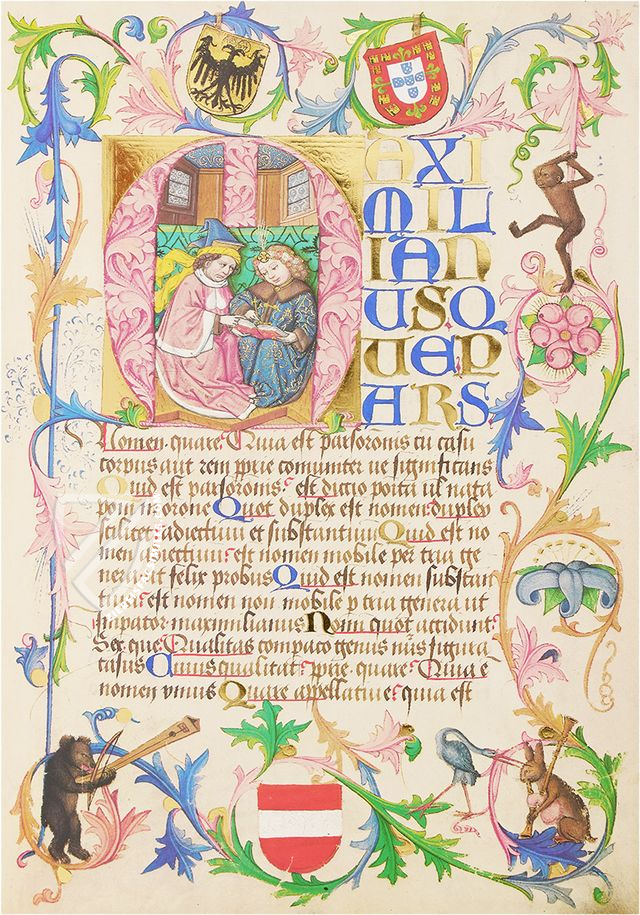 MAXI
MIL
IAN
USQ
UE.P
ARS
Nomen quare Quia est pars oronis cū casu
corpus aut rem pprie comuniter ue significans
Quid est pars oronis est dictio porta ul nata
pom morone Quot duplex est nomen duplex
scilicet adiectum et substantium Quid est no
men adiectium est nomen mobile per tria ge
nera ut felix probus Quid est nomen substan
tium est nomen non mobile p tria genera ut
impator maximilianus Nomi quot accidunt
Sex que Qualitas compaco genus nūs figura
casus Cuius qualitat pprie quare Quia ē
nomen unius Quare appellatiue quia est